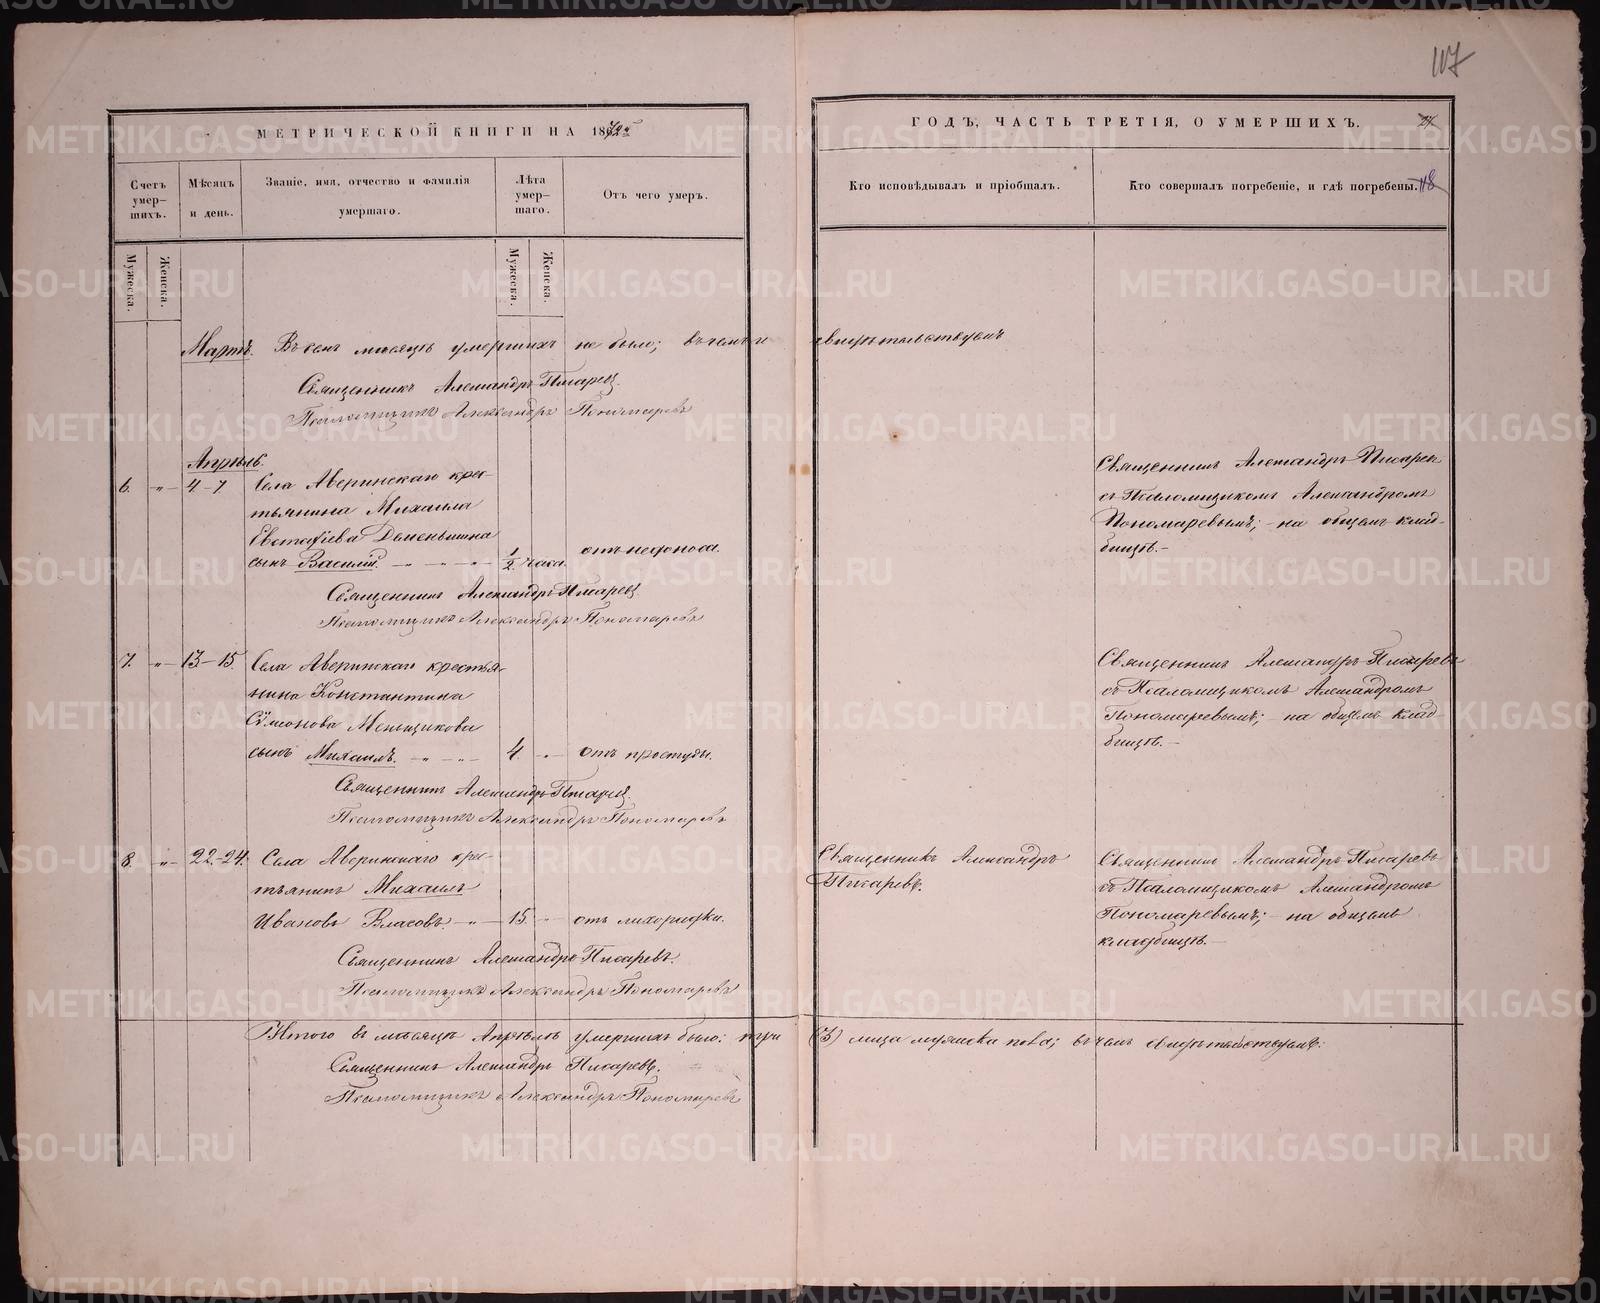 117
МЕТРИЧЕСКОЙ КНИГИ НА 1872й
ГОДЪ, ЧАСТЬ ТРЕТІЯ, О УМЕРШИХЪ.
Счетъ умер-шихъ.
Мѣсяцъ и день.
Званіе, имя, отчество и фамилія умершаго.
Лѣта умер-шаго.
Отъ чего умеръ.
Кто исповѣдывалъ и пріобщалъ.
Кто совершалъ погребеніе, и гдѣ погребены.
118
Мужеска.
Женска.
Мужеска.
Женска.
Мартъ. Въ семъ мѣсяцѣ умершихъ не было; въ чемъ и свидѣтельствуемъ
Священникъ Александръ Писаревъ
Псаломщикъ Александръ Пономаревъ
Апрѣль.
6. „ 4-7 Села Аверинскаго крес-
тьянина Михаила
Евстафіева
сынъ Василій. 1/2 часа. отъ недоноса.
Священникъ Александръ Писаревъ
съ Псаломщикомъ Александромъ
Пономаревымъ; - на общемъ клад-
бищѣ. -
Священникъ Александръ Писаревъ
Псаломщикъ Александръ Пономаревъ
7. „ 13-15 Села Аверинскаго крестья-
нина Константина
Сѵмеонова Меньщикова
сынъ Михаилъ. 4. „ отъ простуды.
Священникъ Александръ Писаревъ
съ Псаломщикомъ Александромъ
Пономаревымъ; - на общемъ клад-
бищѣ. -
Священникъ Александръ Писаревъ
Псаломщикъ Александръ Пономаревъ
8. „ 22-24. Села Аверинскаго крес-
тьянинъ Михаилъ
Ивановъ Власовъ. 15. „ отъ лихорадки.
Священникъ Александръ
Писаревъ.
Священникъ Александръ Писаревъ
съ Псаломщикомъ Александромъ
Пономаревымъ; - на общемъ
кладбищѣ. -
Священникъ Александръ Писаревъ.
Псаломщикъ Александръ Пономаревъ
Итого въ мѣсяцѣ Апрѣлѣ умершихъ было: три (3) лица мужеска пола; въ чемъ свидѣтельствуемъ:
Священникъ Александръ Писаревъ.
Псаломщикъ Александръ Пономаревъ
METRIKI.GASO-URAL.RU